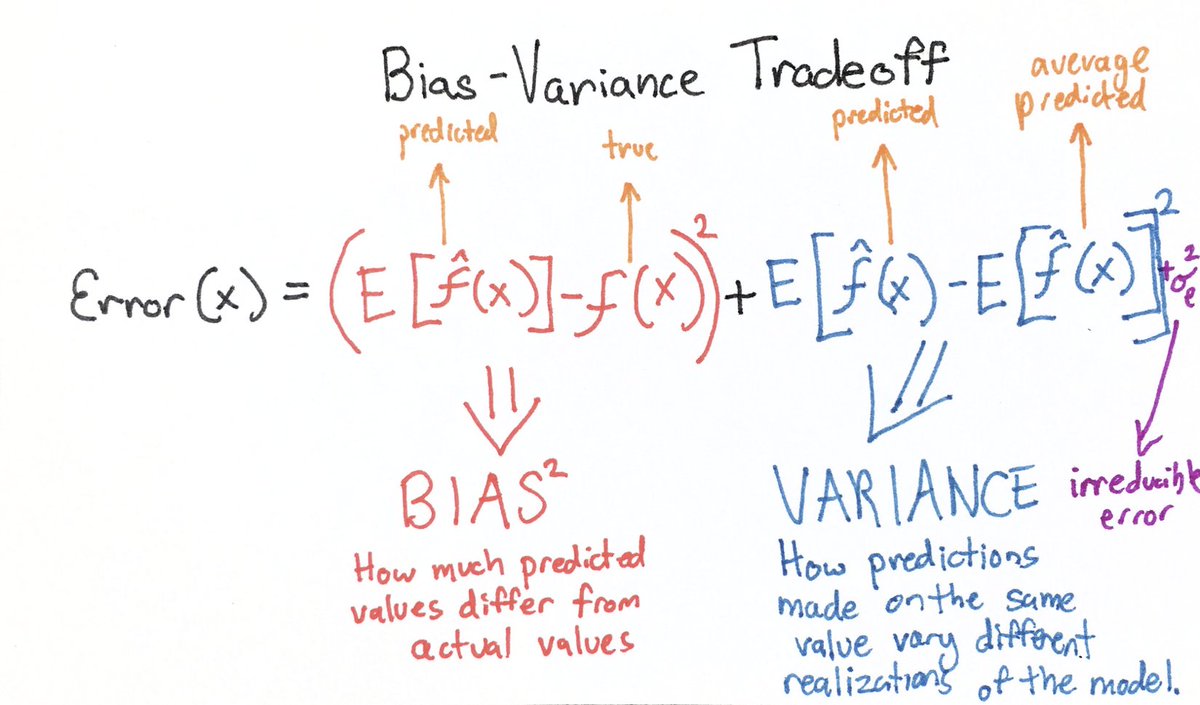 Bias-Variance Tradeoff
predicted
true
predicted
average
predicted
Error(x) = (E[f̂(x)]-f(x))² + E[f̂(x)-E[f̂(x)]]² + σ²e
BIAS²
How much predicted
values differ from
actual values
VARIANCE
How predictions
made on the same
value vary different
realizations of the model.
irreducible
error